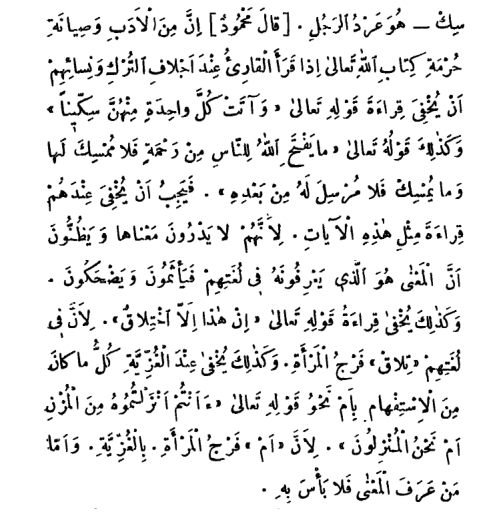 سِكْ ـ هُوَ عَرْدُ اَلرَّجُلِ . [ قالَ مَحْمُودٌ ] اِنَّ مِنَ الْاَدَبِ وَصِيانَةِ
حُرْمَةِ كِتابِ اَللهِ تَعالىٰ اِذا قَرَأَ الْقارِئُ عِنْدَ اَجْلافِ التُّرْكِ وَنِسائِهِمْ
اَنْ يُخْفِىَ قِراءَةَ قَوْلِهِ تَعالىٰ « وَ آتَتْ كُلَّ واحِدَةٍ مِنْهُنَّ سِكّٖيناً »
وَكَذٰلِكَ قَوْلُهُ تَعالىٰ « ما يَفْتَحِ اَللهُ لِلنّاسِ مِنْ رَحْمَةٍ فَلا مُمْسِكَ لَها
وَما يُمْسِكْ فَلا مُرْسِلَ لَهُ مِنْ بَعْدِهِ » . فَيَجِبُ اَنْ يُخْفِىَ عِنْدَهُمْ
قِراءَةَ مِثْلِ هٰذِهِ الْآياتِ . لِاَنَّهُمْ لا يَدْرُونَ مَعْناها وَ يَظُنُّونَ
اَنَّ الْمَعْنٰى هُوَ اَلَّذٖى يَعْرِفُونَهُ فٖى لُغَتِهِمْ فَيَأْثَمُونَ وَ يَضْحَكُونَ .
وَكَذٰلِكَ يُخْفىٰ قِراءَةُ قَوْلِهِ تَعالىٰ « اِنْ هٰذا اِلَّا اخْتِلاقٌ » . لِاَنَّ فٖى
لُغَتِهِمْ « تِلاقْ » فَرْجُ الْمَرْأَةِ . وَكَذٰلِكَ يُخْفىٰ عِنْدَ الْغُزِّيَّةِ كُلُّ ما كانَ
مِنَ الْاِسْتِفْهامِ بِاَمْ نَحْوُ قَوْلِهِ تَعالىٰ « ءَ اَنْتُمْ اَنْزَلْتُمُوهُ مِنَ الْمُزْنِ
اَمْ نَحْنُ الْمُنْزِلُونَ » . لِاَنَّ « اَمْ » فَرْجُ الْمَرْأَةِ . بِالْغُزِّيَّةِ . وَ اَمّا
مَنْ عَرَفَ الْمَعْنٰى فَلا بَأْسَ بِهِ .